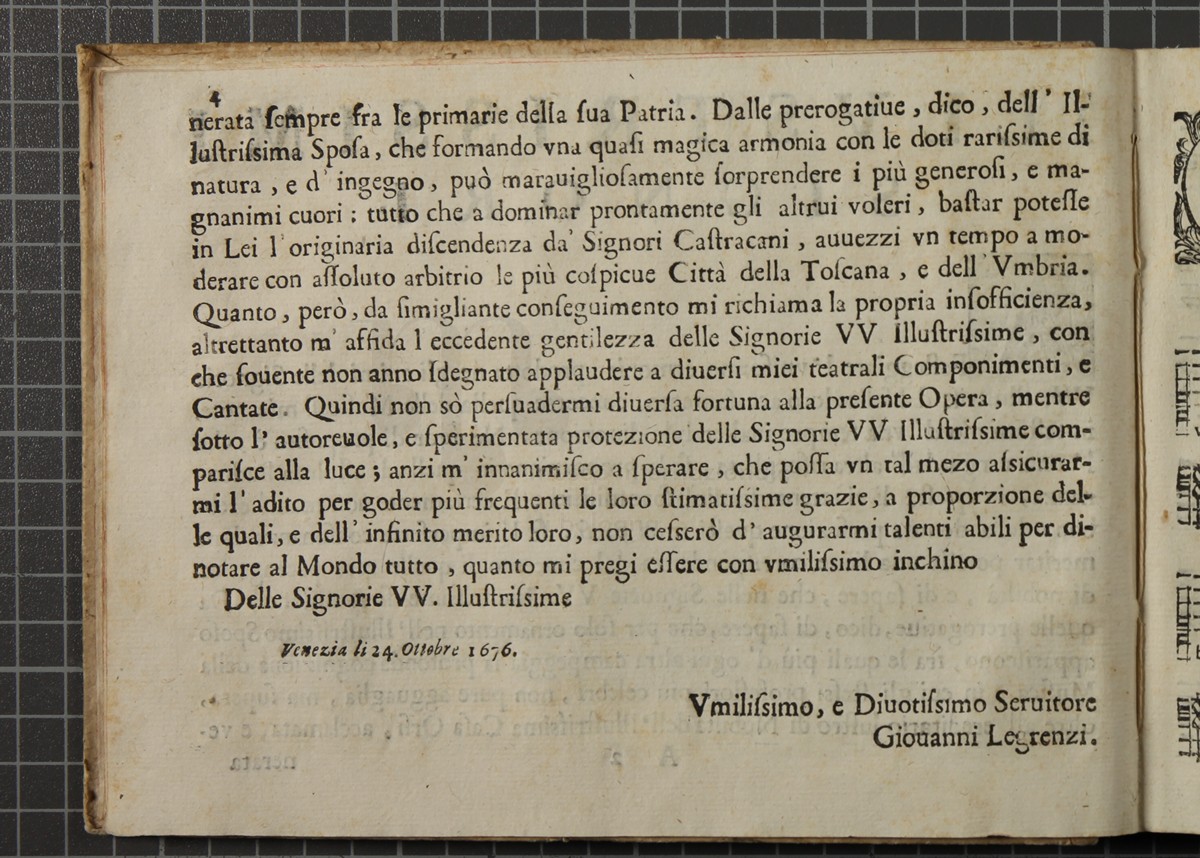 4
nerata ſempre fra le primarie della ſua Patria. Dalle prerogatiue, dico, dell' Il-
luſtriſsima Spoſa, che formando vna quaſi magica armonia con le doti rariſsime di
natura, e d' ingegno, può marauiglioſamente ſorprendere i più generoſi, e ma-
gnanimi cuori: tutto che a dominar prontamente gli altrui voleri, baſtar poteſſe
in Lei l' originaria diſcendenza da' Signori Caſtracani, auuezzi vn tempo a mo-
derare con aſſoluto arbitrio le più coſpicue Città della Toſcana, e dell' Vmbria.
Quanto, però, da ſimigliante conſeguimento mi richiama la propria inſofficienza,
altrettanto m' affida l eccedente gentilezza delle Signorie VV Illuſtriſsime, con
che ſouente non anno ſdegnato applaudere a diuerſi miei teatrali Componimenti, e
Cantate. Quindi non sò perſuadermi diuerſa fortuna alla preſente Opera, mentre
ſotto l' autoreuole, e ſperimentata protezione delle Signorie VV Illuſtriſsime com-
pariſce alla luce; anzi m' innanimiſco a ſperare, che poſſa vn tal mezo aſsicurar-
mi l' adito per goder più frequenti le loro ſtimatiſsime grazie, a proporzione del-
le quali, e dell' infinito merito loro, non ceſserò d' augurarmi talenti abili per di-
notare al Mondo tutto, quanto mi pregi eſſere con vmiliſsimo inchino
Delle Signorie VV. Illuſtriſsime
Venezia li 24. Ottobre 1676.
Vmiliſsimo, e Diuotiſsimo Seruitore
Giouanni Legrenzi.